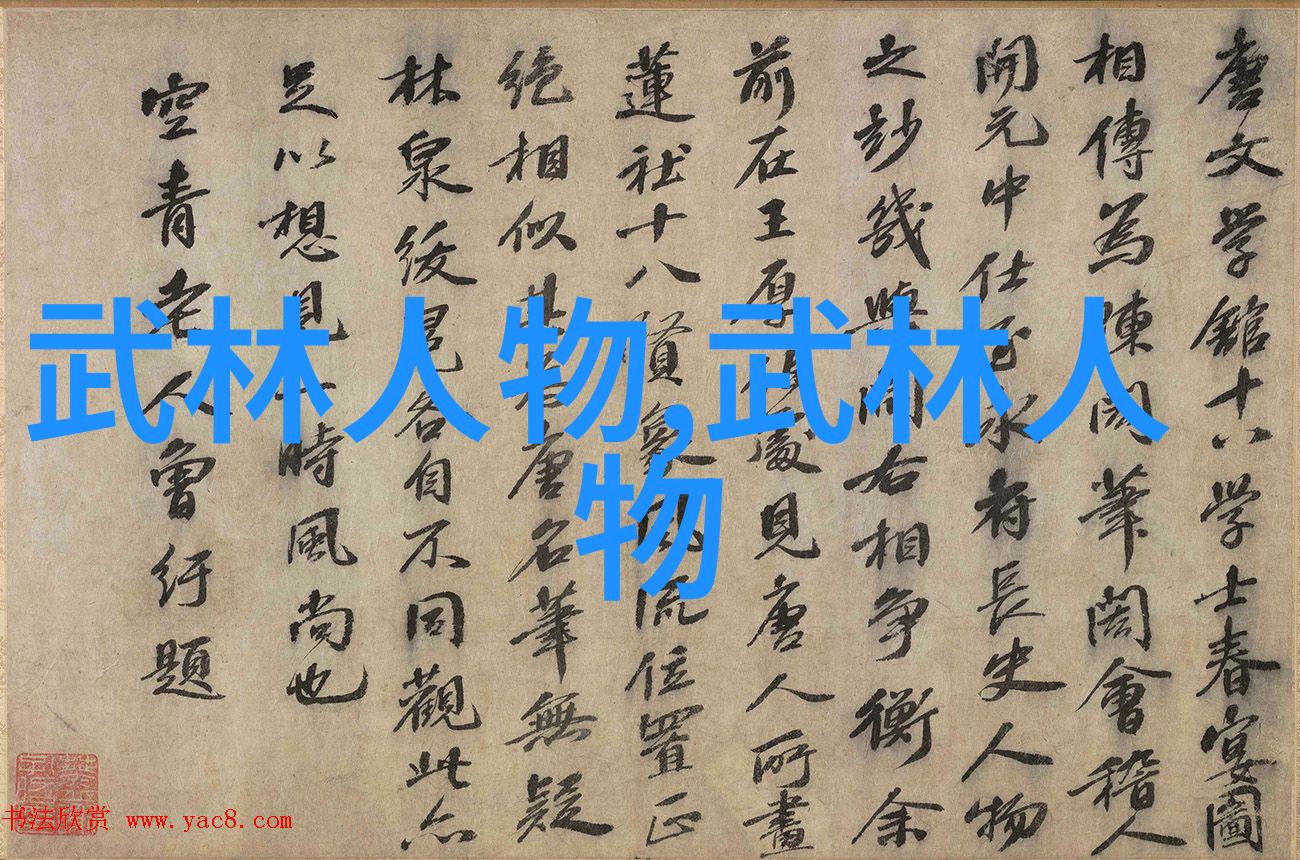 唐文学館十八学士春宴圖
相傳為陳閎筆閎會稽人
開元中仕至永府長史人物
之妙幾與閻右相爭衡余
前在王厚處見唐人所畫
蓮社十八賢象風流位置正
絶相似其唐名筆無疑
林泉綬冕各自不同觀此亦
足以想見一時風尚也
空青老人曾紆題
武林人物,武林人
物
书法欣赏 www.yac8.com